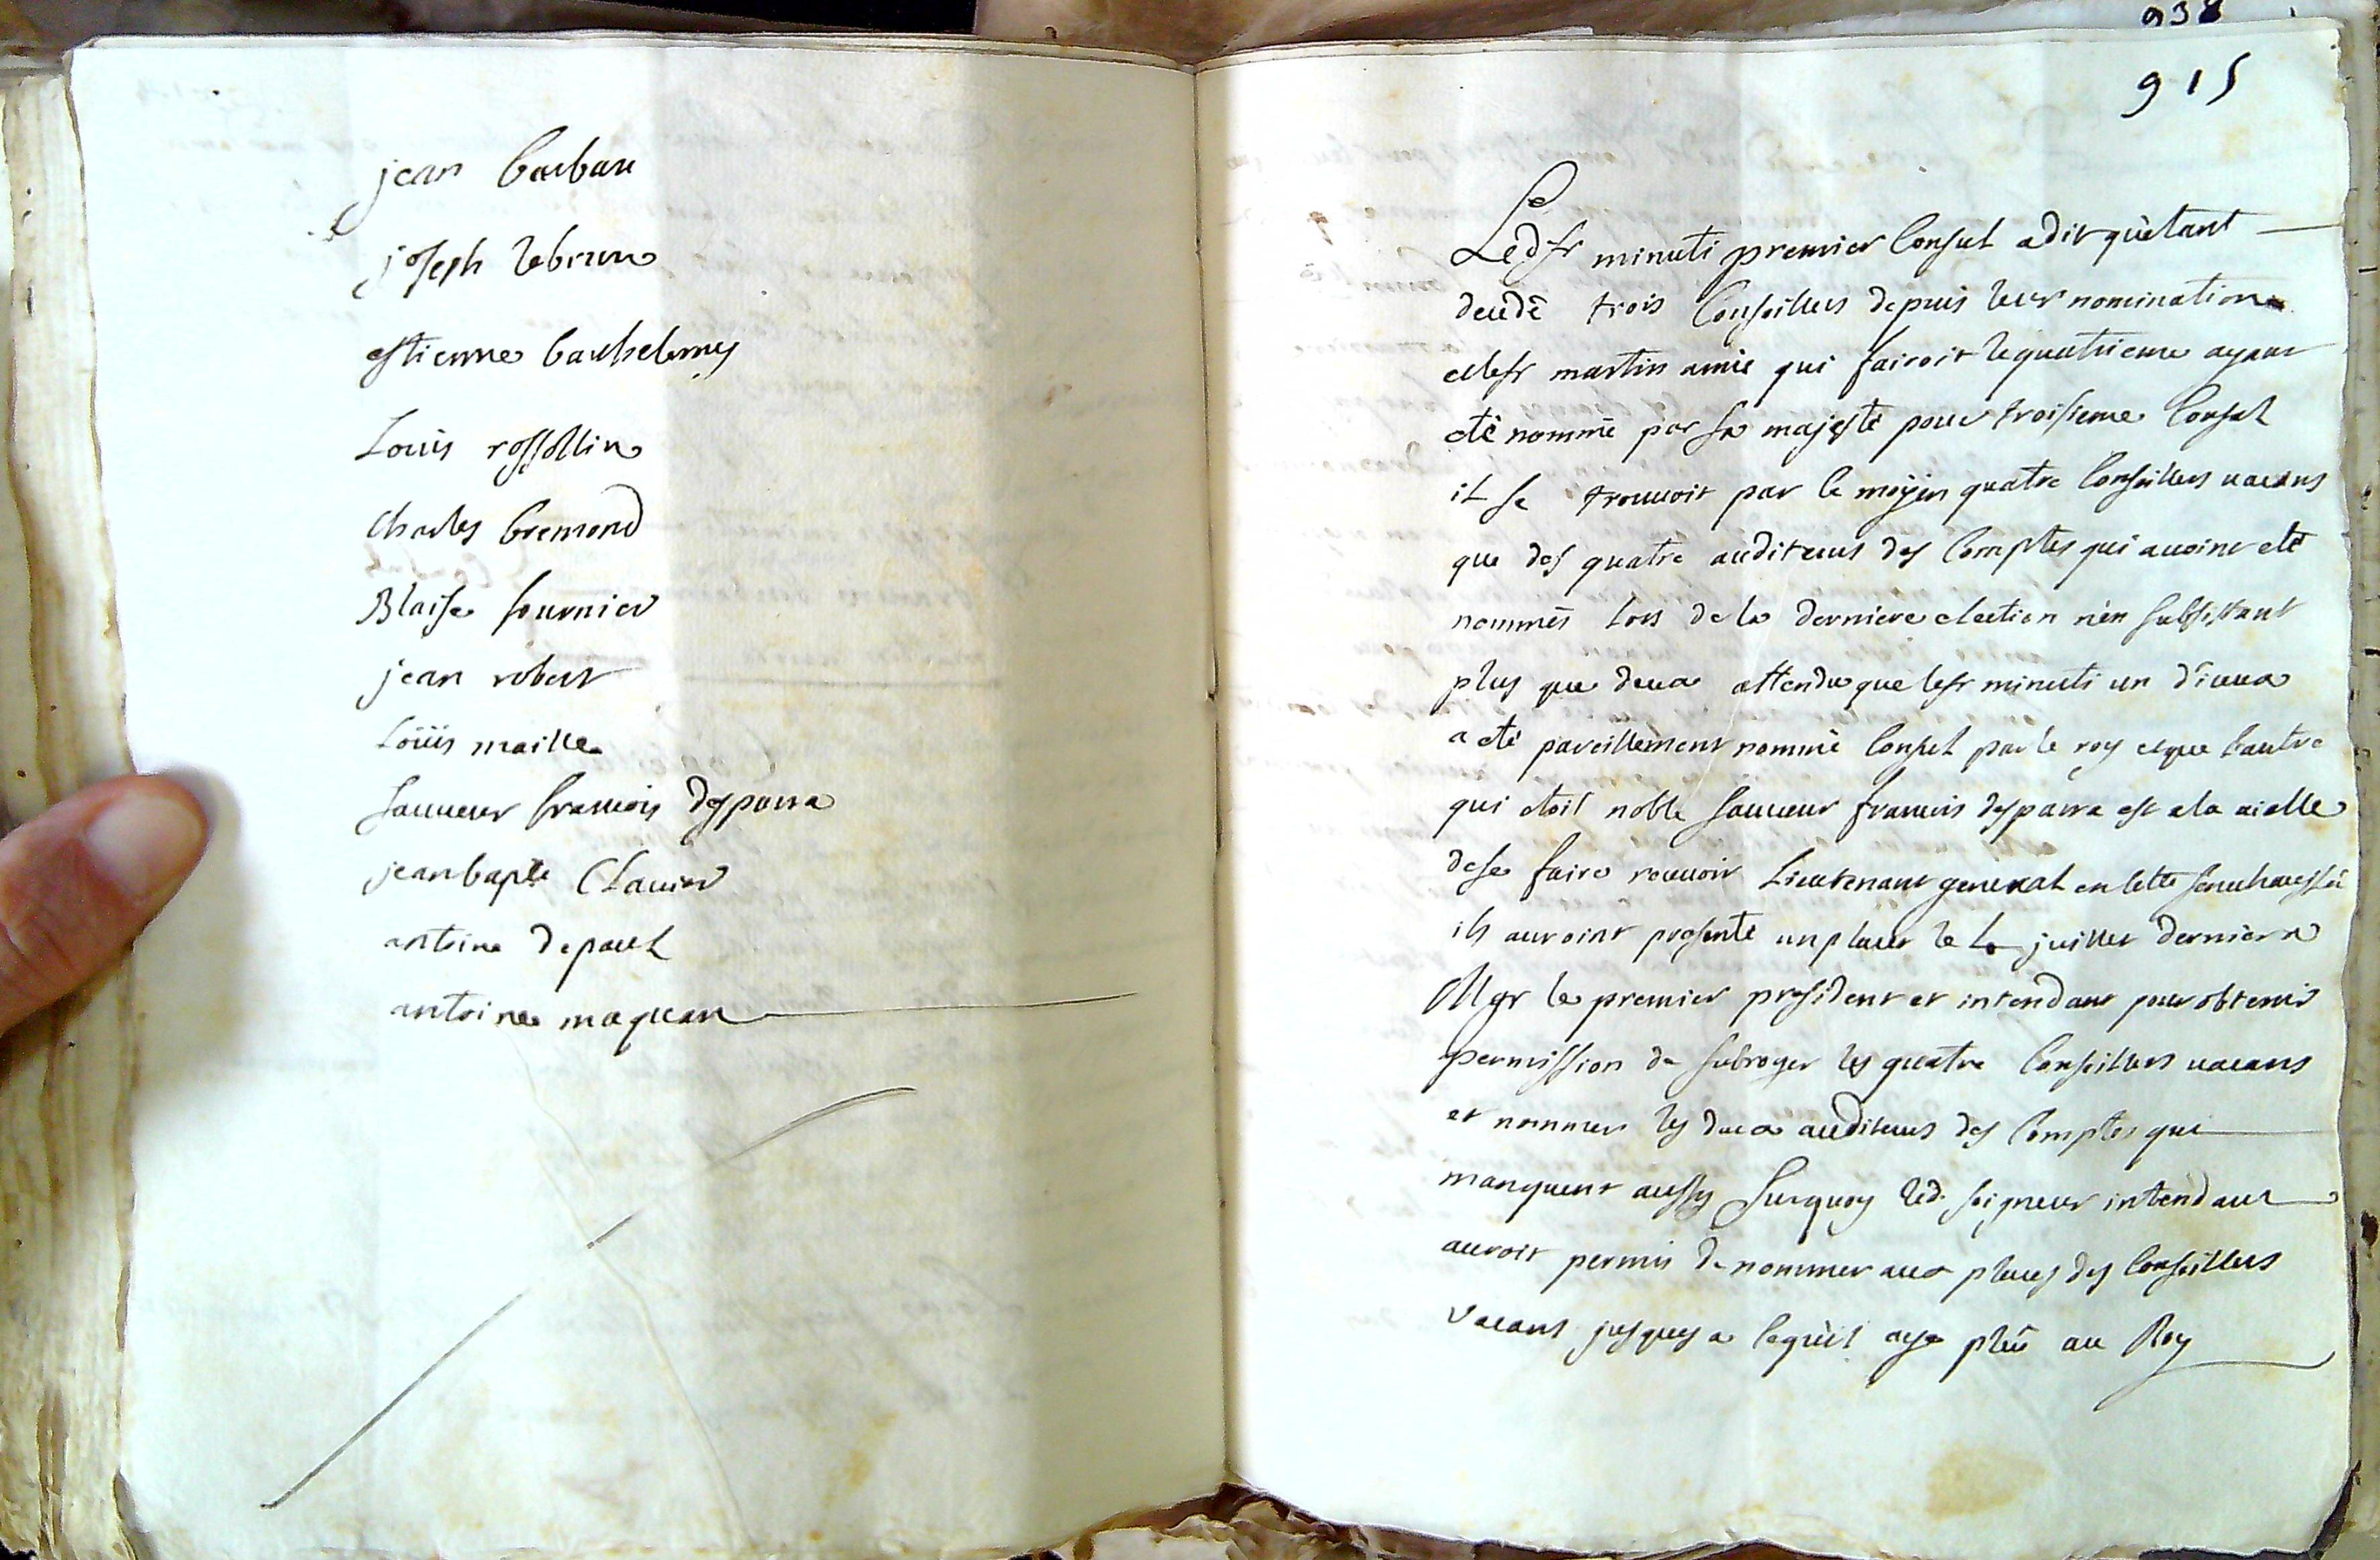 jean barbare
joseph lebrun
estienne barthelemy
Louis rossollin
Charles bremond
Blaise fournier
jean robert
Loüis maille
sauveur francois desparra
jean bapte Clavier
antoine depaul
antoine maquan
938
915
Ledsr minuti premier Consul a dit qu'etant
decedé trois Conseillers depuis leur nomination
et le sr martin amic qui faisoit le quatrieme ayant
eté nommé par sa majesté pour troisieme Consul
il se trouvoit par ce moÿen quatre Conseillers vacans
que des quatre auditeurs des Comptes qui avoint eté
nommés Lors de la derniere election n'en subsistant
plus que deux attendu que le sr minuti un d'iceux
a eté pareillement nommé Consul par le roy et que l'autre
qui etoit noble sauveur francois desparra est a la vielle
de se faire recevoir Lieutenant general en Cette senechaussée
ils auroint presenté un placet le juillet dernier a
Mgr le premier president et intendant pour obtenir
permission de subroger les quatre Conseillers vacans
et nommer les deux auditeurs des Comptes qui
manquent aussy surquoy led. seigneur intendant
auroit permis de nommer aux places des Conseillers
vacans jusques a Ce qu'il aye plû au Roy